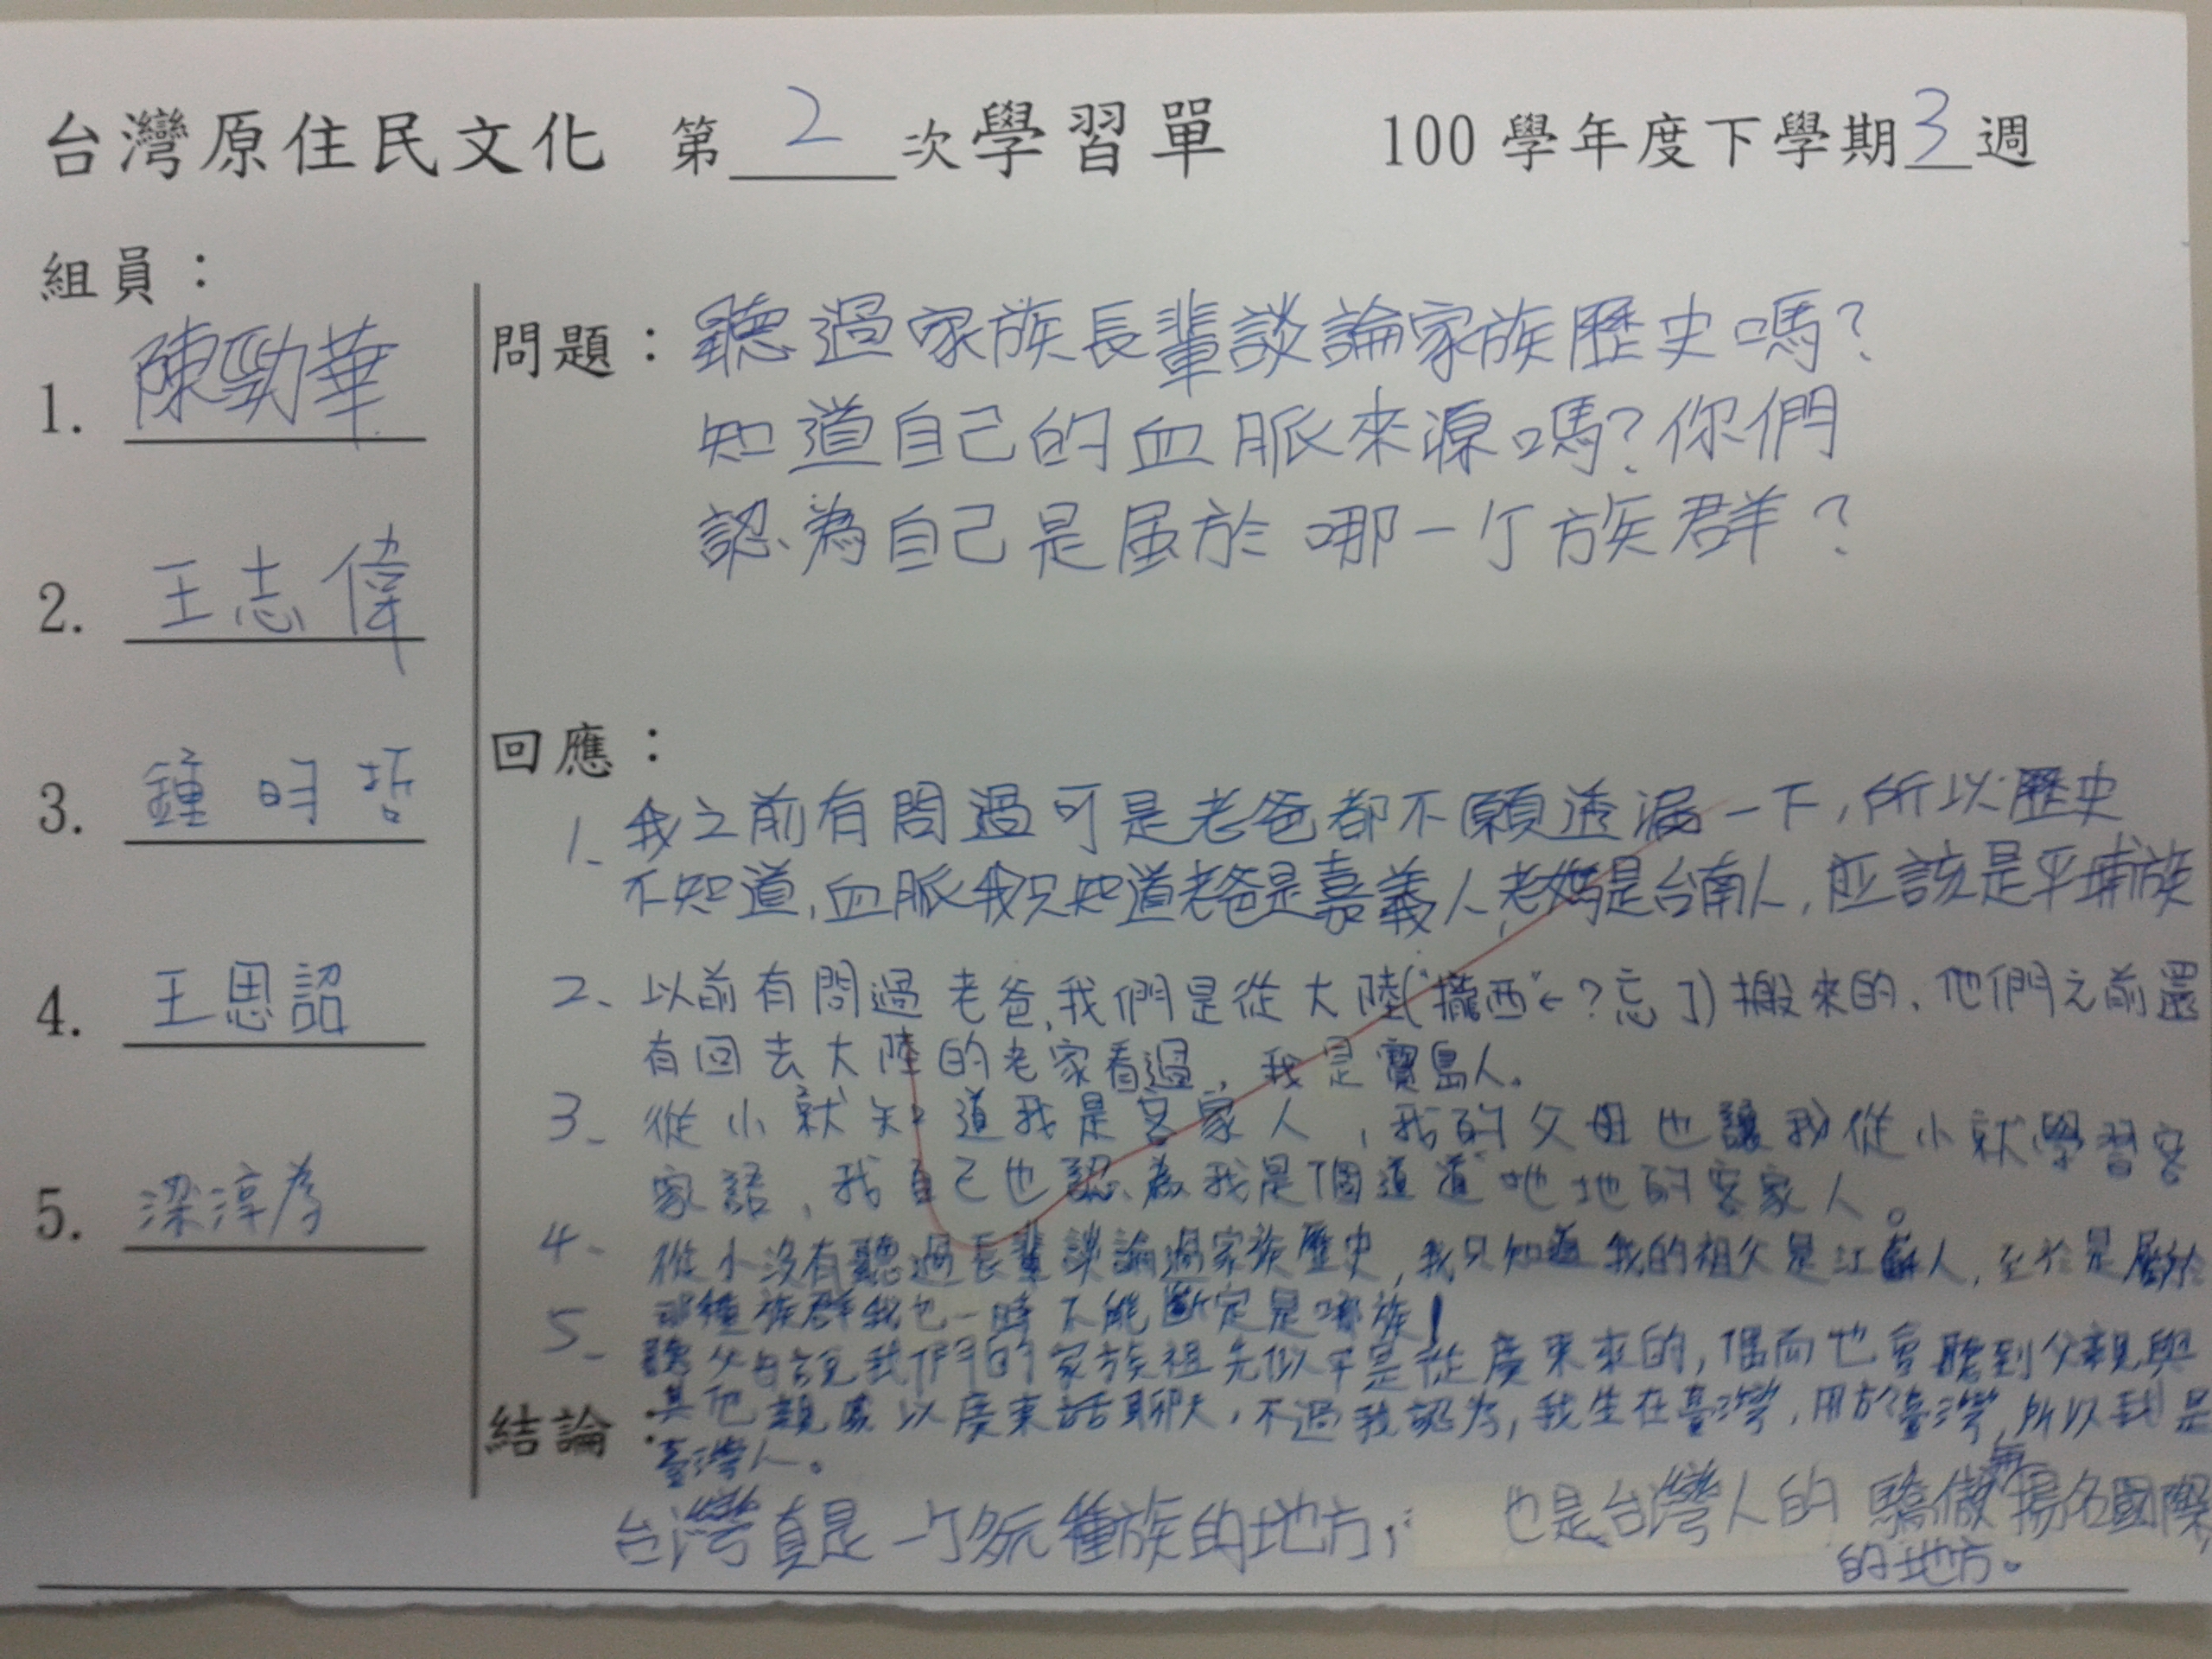 台灣原住民文化 第 2 次學習單 100學年度下學期3週
組員：
1. 陳勁華
2. 王志偉
3. 鍾明哲
4. 王思詔
5. 梁淳為
問題：聽過家族長輩談論家族歷史嗎？
知道自己的血脈來源嗎？你們
認為自己是屬於哪一个族群？
回應：
1、我之前有問過可是老爸都不願透漏一下，所以歷史
不知道，血脈我只知道老爸是嘉義人，老媽是台南人，應該是平埔族
2、以前有問過老爸，我們是從大陸("攏西"←？忘了)搬來的，他們之前還
有回去大陸的老家看過，我是寶島人。
3、從小就知道我是客家人，我的父母也讓我從小就學習客
家語，我自己也認為我是個道道地地的客家人。
4、從小沒有聽過長輩談論過家族歷史，我只知道我的祖父是江蘇人，至於是屬於
哪種族群我也一時不能斷定是哪族！
5、聽父母說我們的家族祖先似乎是從廣東來的，偶而也會聽到父親與
其他親戚以廣東話聊天，不過我認為，我生在臺灣，用於臺灣，所以我是
臺灣人。
結論：
台灣真是一个多元種族的地方，也是台灣人的驕傲無揚名國際
的地方。